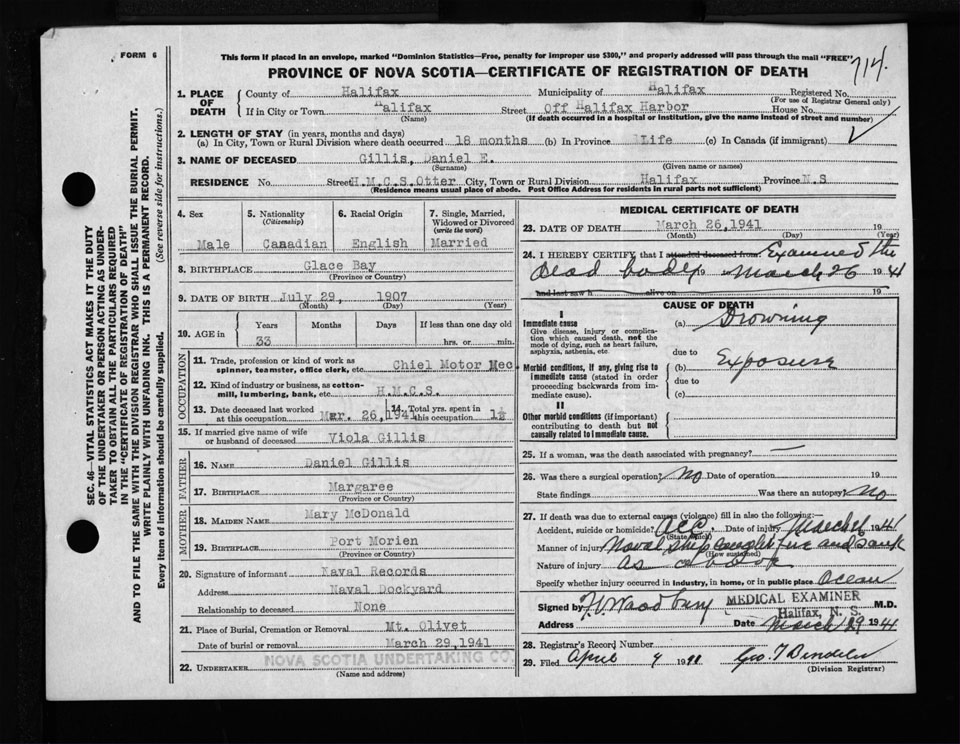 FORM 6
This form if placed in an envelope, marked "Dominion Statistics—Free, penalty for improper use $300," and properly addressed will pass through the mail "FREE"
714.
PROVINCE OF NOVA SCOTIA—CERTIFICATE OF REGISTRATION OF DEATH
1. PLACE OF DEATH
County of Halifax Municipality of Halifax Registered No.
(For use of Registrar General only)
If in City or Town Halifax Street Off Halifax Harbor House No.
(Name) (If death occurred in a hospital or institution, give the name instead of street and number)
2. LENGTH OF STAY (in years, months and days)
(a) In City, Town or Rural Division where death occurred 18 months (b) In Province Life (c) In Canada (if immigrant)
3. NAME OF DECEASED Gillis, Daniel E.
(Surname) (Given name or names)
RESIDENCE No. Street H.M.C.S.Otter City, Town or Rural Division Halifax Province N.S
(Residence means usual place of abode. Post Office Address for residents in rural parts not sufficient)
4. Sex
Male
5. Nationality
(Citizenship)
Canadian
6. Racial Origin
English
7. Single, Married, Widowed or Divorced
(write the word)
Married
8. BIRTHPLACE Glace Bay
(Province or Country)
9. DATE OF BIRTH July 29, 1907
(Month) (Day) (Year)
10. AGE in
Years Months Days If less than one day old
33 hrs. or min.
OCCUPATION
11. Trade, profession or kind of work as spinner, teamster, office clerk, etc. Chiel Motor Mec.
12. Kind of industry or business, as cotton-mill, lumbering, bank, etc. H.M.C.S.
13. Date deceased last worked at this occupation Mar. 26,1941
14. Total yrs. spent in this occupation 1½
15. If married give name of wife or husband of deceased Viola Gillis
FATHER
16. NAME Daniel Gillis
17. BIRTHPLACE Margaree
(Province or Country)
MOTHER
18. MAIDEN NAME Mary McDonald
19. BIRTHPLACE Port Morien
(Province or Country)
20. Signature of informant Naval Records
Address Naval Dockyard
Relationship to deceased None
21. Place of Burial, Cremation or Removal Mt. Olivet
Date of burial or removal March 29,1941
22. UNDERTAKER NOVA SCOTIA UNDERTAKING CO.
(Name and address)
MEDICAL CERTIFICATE OF DEATH
23. DATE OF DEATH March 26,1941 19
(Month) (Day) (Year)
24. I HEREBY CERTIFY, that I attended deceased from Examined the
dead body 19 March 26 1941
and last saw h alive on 19
CAUSE OF DEATH
I
Immediate cause
Give disease, injury or complication which caused death, not the mode of dying, such as heart failure, asphyxia, asthenia, etc.
(a) Drowning
due to
Morbid conditions, if any, giving rise to immediate cause (stated in order proceeding backwards from immediate cause).
(b) Exposure
due to
(c)
II
Other morbid conditions (if important) contributing to death but not causally related to immediate cause.
25. If a woman, was the death associated with pregnancy? —
26. Was there a surgical operation? No Date of operation 19
State findings Was there an autopsy? No
27. If death was due to external causes (violence) fill in also the following:
Accident, suicide or homicide? Acc. Date of injury March 26 1941
(State which)
Manner of injury Naval ship caught fire and sank
(How sustained)
Nature of injury as above
Specify whether injury occurred in industry, in home, or in public place Ocean
Signed by F.V. Woodbury MEDICAL EXAMINER M.D.
Halifax, N. S.
Address Date March 29 1941
28. Registrar's Record Number
29. Filed April 4 1941 Geo. T.
(Division Registrar)
SEC. 46—VITAL STATISTICS ACT MAKES IT THE DUTY
OF THE UNDERTAKER OR PERSON ACTING AS UNDER-
TAKER TO OBTAIN ALL THE PARTICULARS REQUIRED
IN THE "CERTIFICATE OF REGISTRATION OF DEATH"
AND TO FILE THE SAME WITH THE DIVISION REGISTRAR WHO SHALL ISSUE THE BURIAL PERMIT.
WRITE PLAINLY WITH UNFADING INK. THIS IS A PERMANENT RECORD.
Every item of information should be carefully supplied. (See reverse side for instructions.)